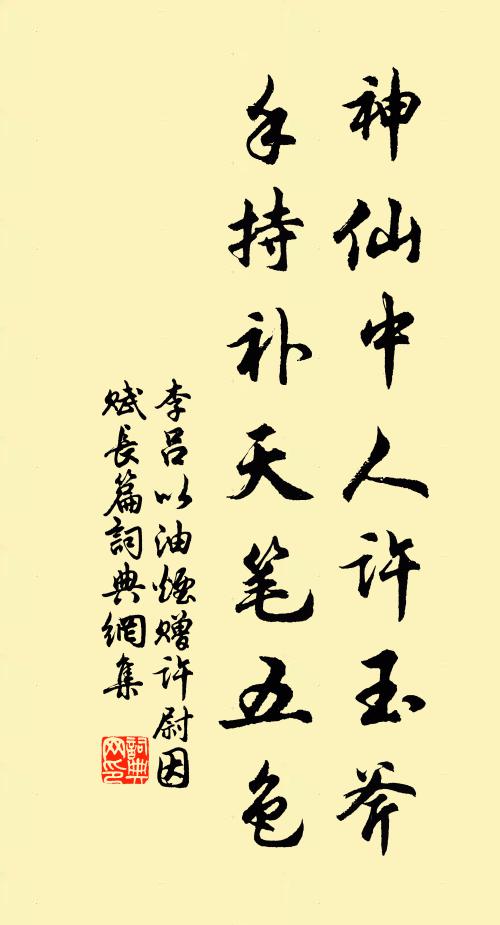 神仙中人许玉斧
手持补天笔五色
李吕以油烟赠许尉因
赋长篇詞典網集
詞典网印